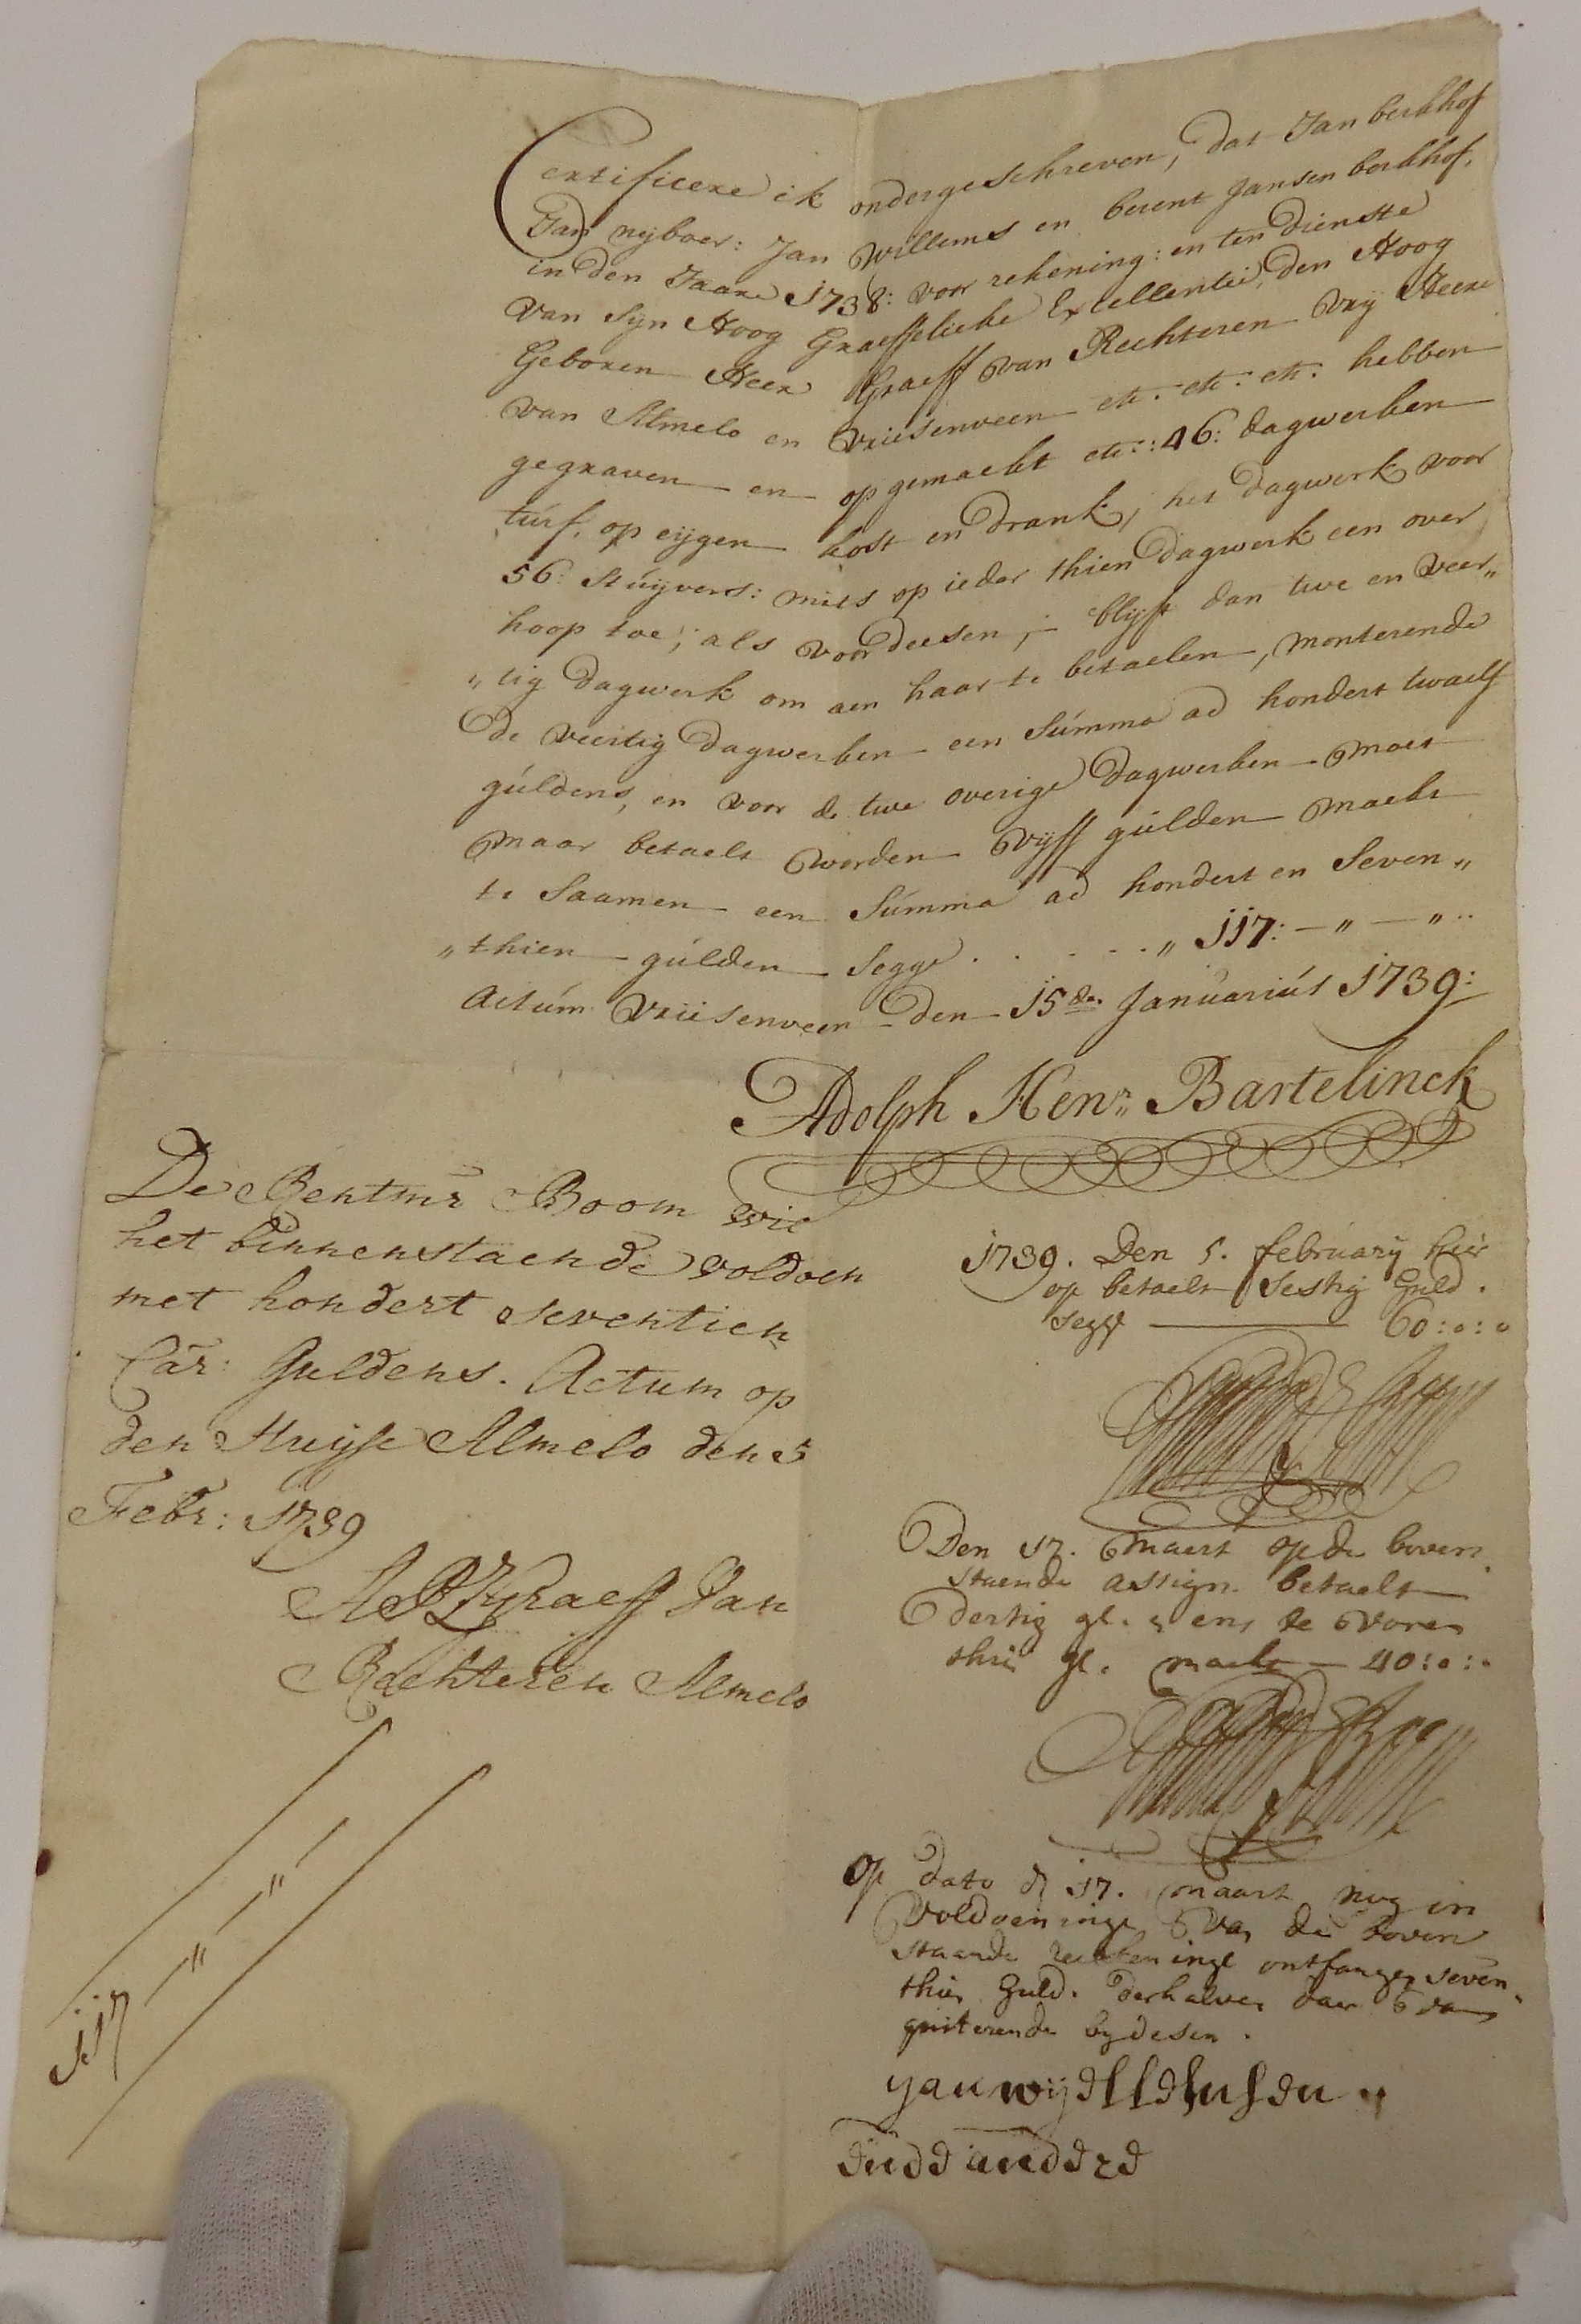 Certificere ik ondergeschreven, dat Jan berkhof
Jan nijboer: Jan Willems en berent Jansen berkhof,
in den Jaare 1738: voor rekening: en ten dienste
van Sijn Hoog Graeffelicke Excellentie, den Hoog
Geboren Heer Graeff van Rechteren vrij Heere
van Almelo en Vriesenveen etc. etc. etc. hebben
gegraven en op gemackt etc.: 46: dagwerken
turf, op eijgen kost en drank, het dagwerk voor
56: Stuijvers: mits op ieder thien dagwerk een over
hoop toe; als voor deesen; blijft dan twe en veer„
„tig dagwerk om aen haar te betaelen, monterende
de veertig dagwerken een Summa ad hondert twaelf
guldens, en voor de twe overige dagwerken moet
maar betaelt worden vijff gulden maekt
te Saamen een Summa ad hondert en Seven„
„thien gulden Segge . . . . . „ 117: — „ — „ ..
Actum Vriesenveen den 15de. Januariús 1739:
Adolph Henr: Bartelinck
De Rentmr Boom wil
het binnenstaende voldoen
met hondert seventien
Car: Guldens. Actum op
den Huijse Almelo den 5
Febr: 1739
Graeff Van
Rechteren Almelo
117 — „ — „ —
1739. Den 5. february hier
op betaelt Sestig Guld.
segge — 60:0:0
Den 17. Maert op de boven
staende assign. betaelt
dertig gl. en te voren
thien gl. maekt — 40:0:0
op dato d 17. maart nog in
voldoeninge van de boven
staande rekeninge ontfangen seven
thien Guld. derhalven daer van
quiterende by desen.
Jan
ende andere